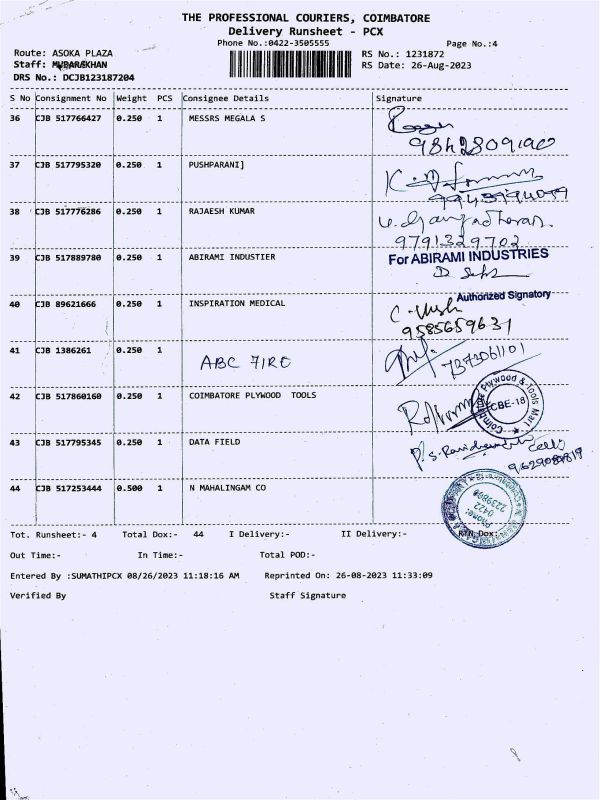 THE PROFESSIONAL COURIERS, COIMBATORE
Delivery Runsheet - PCX
Phone No.:0422-3505555
Page No.:4
Route: ASOKA PLAZA
RS No.: 1231872
Staff: MUBARAKHAN
RS Date: 26-Aug-2023
DRS No.: DCJB123187204
S No Consignment No Weight PCS Consignee Details Signature
36 CJB 517766427 0.250 1 MESSRS MEGALA S
37 CJB 517795320 0.250 1 PUSHPARANI]
38 CJB 517776286 0.250 1 RAJAESH KUMAR
9791329702
39 CJB 517889780 0.250 1 ABIRAMI INDUSTIER For ABIRAMI INDUSTRIES
Authorized Signatory
40 CJB 89621666 0.250 1 INSPIRATION MEDICAL
9585659631
41 CJB 1386261 0.250 1 ABC FIRE 7373061101
42 CJB 517860160 0.250 1 COIMBATORE PLYWOOD TOOLS
CBE-18
43 CJB 517795345 0.250 1 DATA FIELD
44 CJB 517253444 0.500 1 N MAHALINGAM CO
Phone: 0422
Tot. Runsheet:- 4 Total Dox:- 44 I Delivery:- II Delivery:- RTN Dox:
Out Time:- In Time:- Total POD:-
Entered By :SUMATHIPCX 08/26/2023 11:18:16 AM Reprinted On: 26-08-2023 11:33:09
Verified By Staff Signature